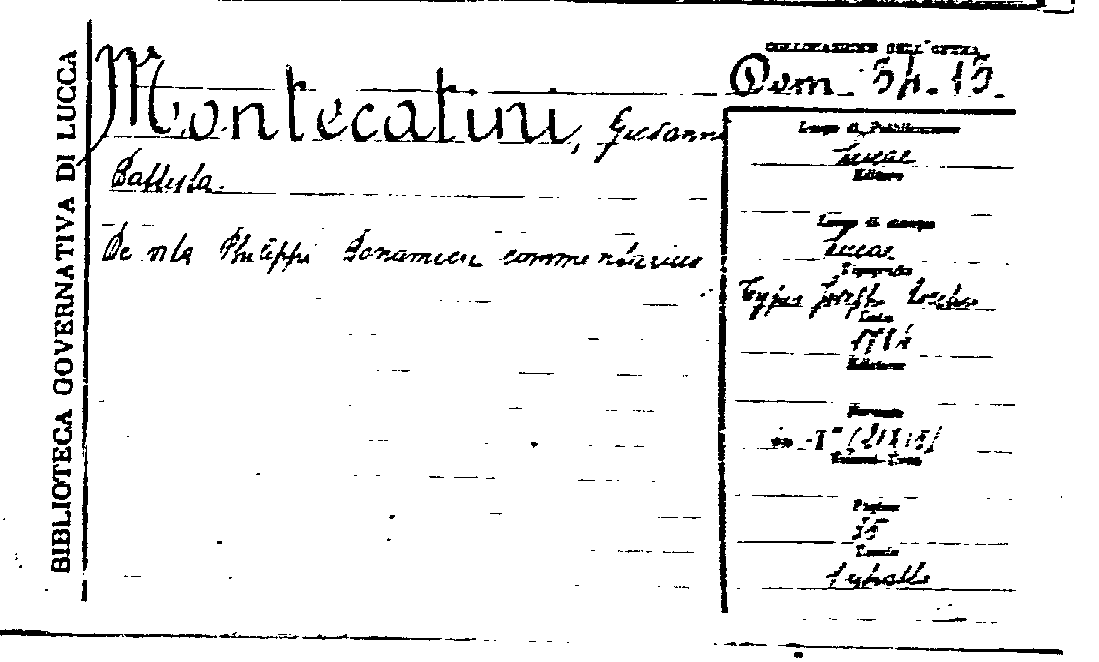 BIBLIOTECA GOVERNATIVA DI LUCCA
Montecatini, Giovanni
Battista.
De vita Philippi Bonamici commentarius
COLLOCAZIONE DELL'OPERA
Luogo di Pubblicazione
Lucae
Editore
Luogo di stampa
Lucae
Tipografia
Typis Joseph
Data
Edizione
Formato
Pagine
35